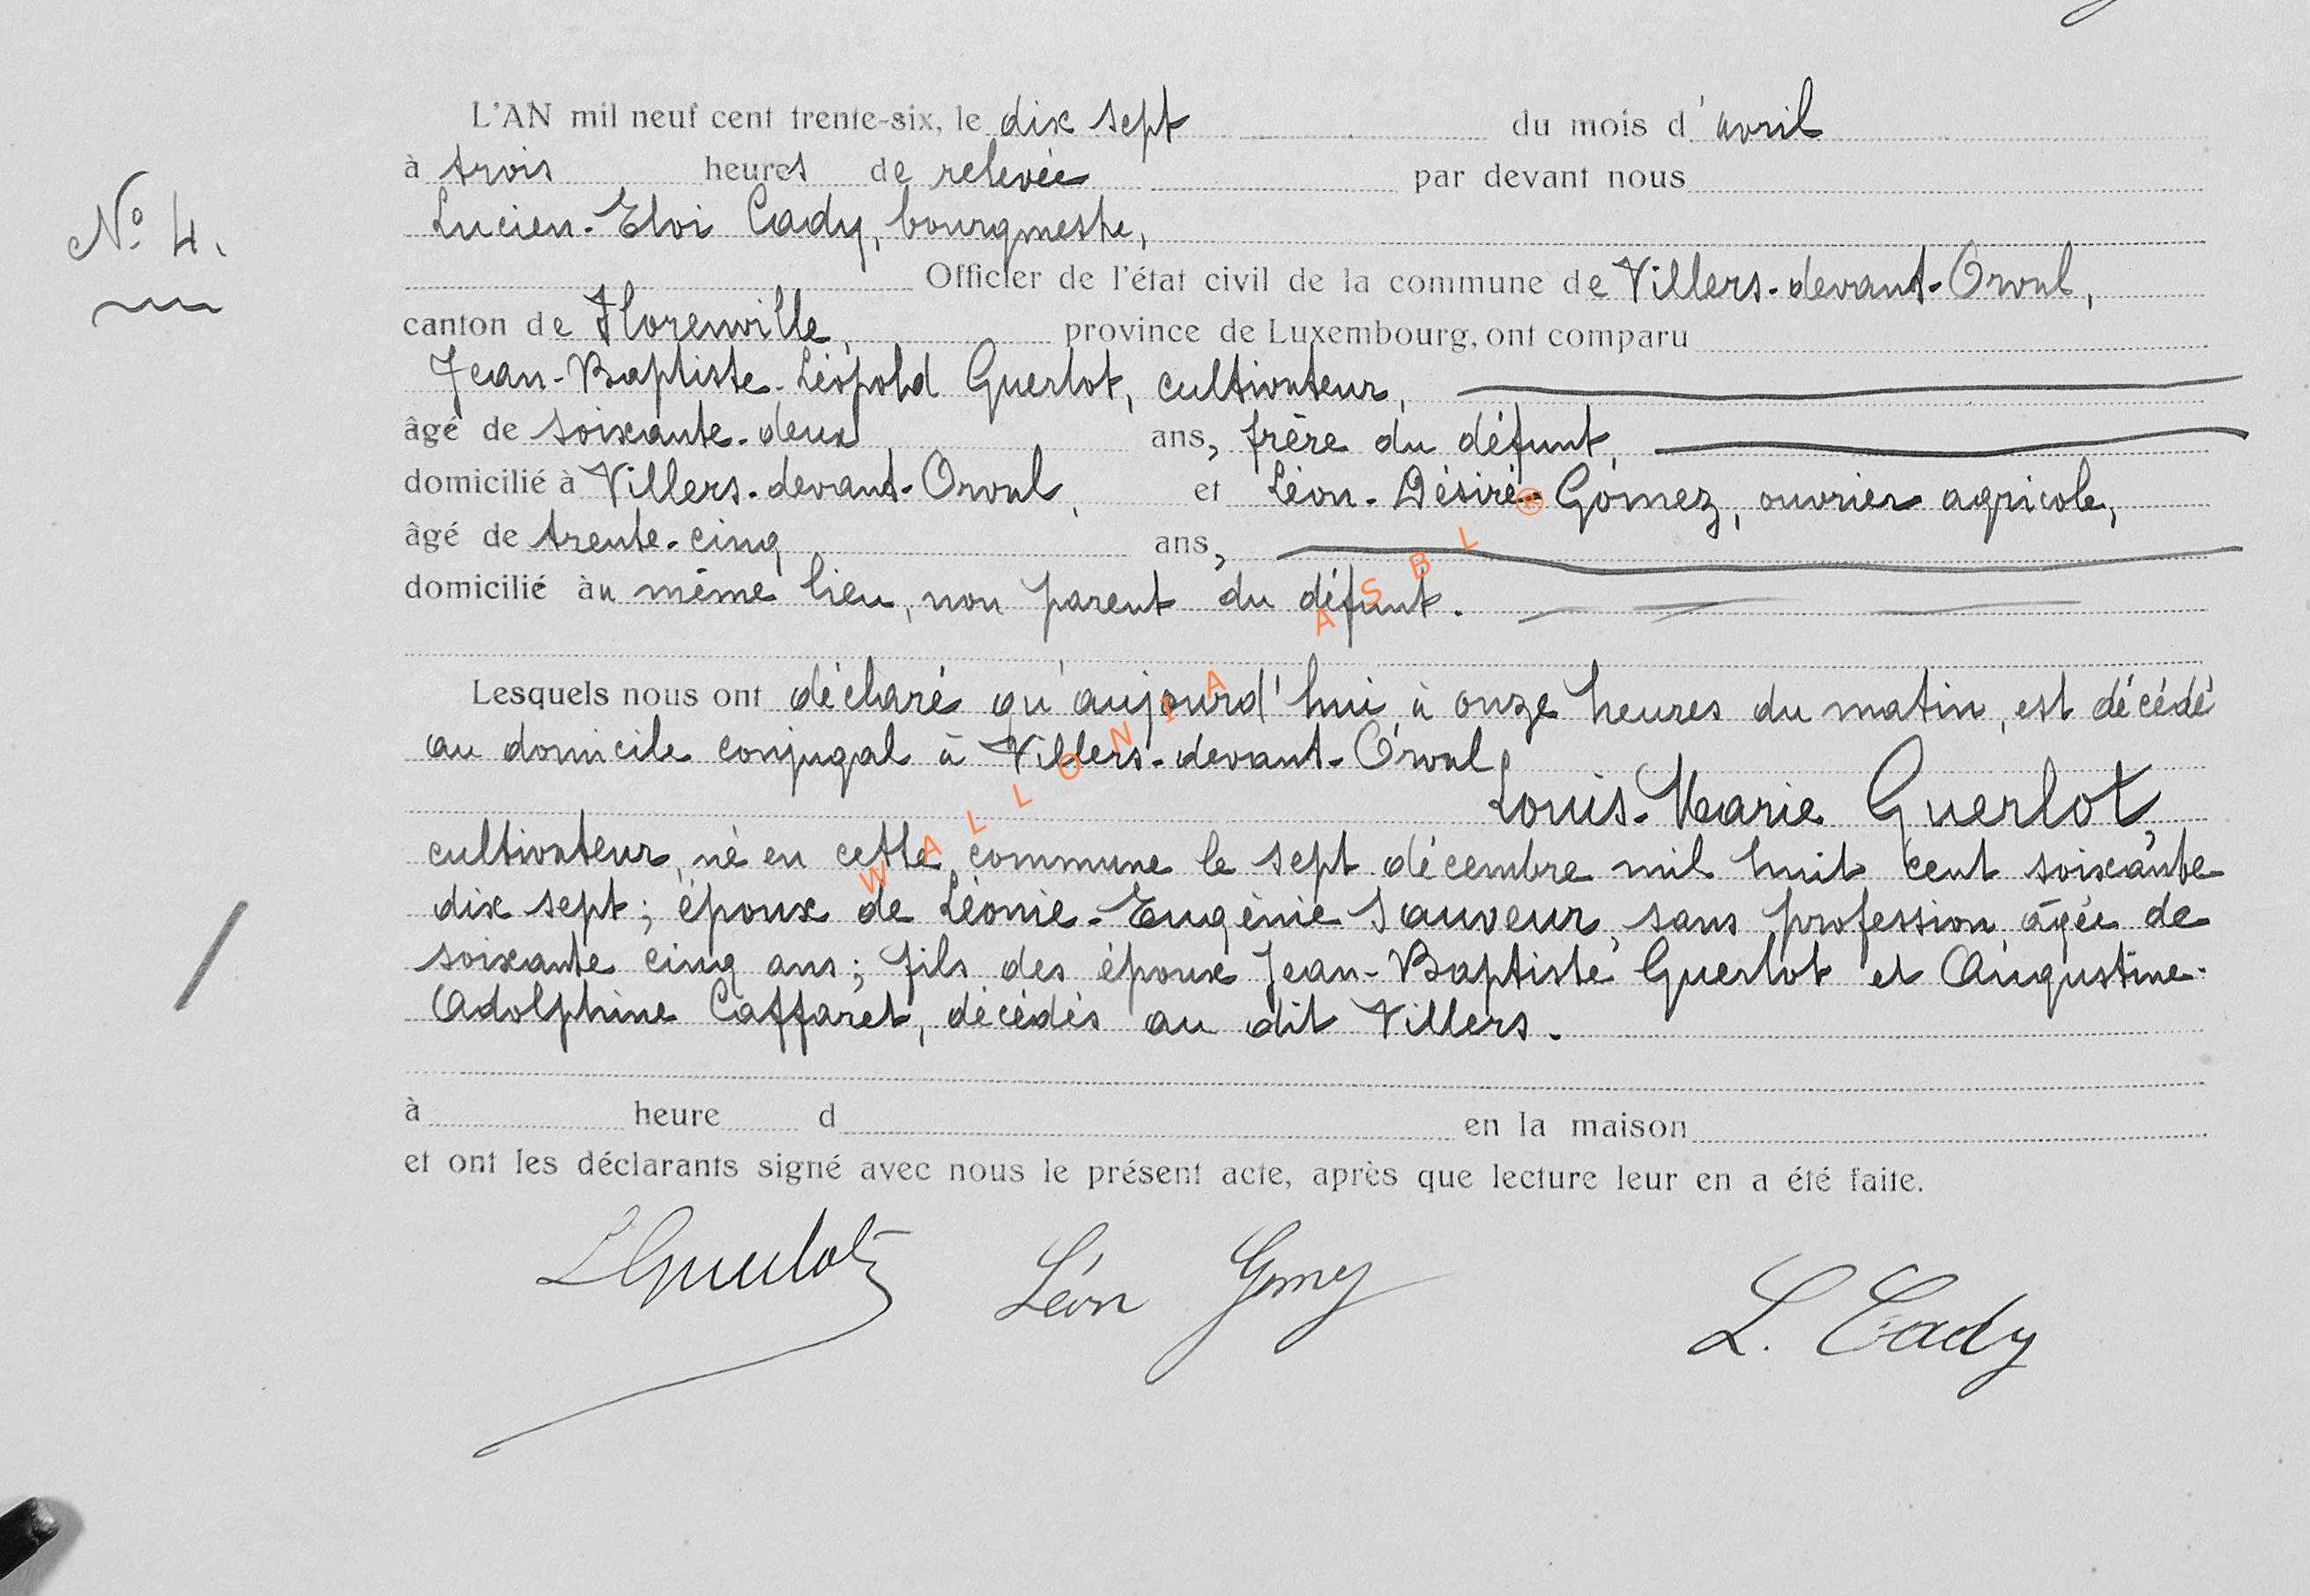 L'AN mil neuf cent trente-six, le dix sept du mois d'avril
à trois heures de relevée par devant nous
Lucien-Eloi Cady, bourgmestre,
Officier de l'état civil de la commune de Villers-devant-Orval,
canton de Florenville, province de Luxembourg, ont comparu
Jean-Baptiste-Léopold Guerlot, cultivateur,
âgé de soixante-deux ans, frère du défunt,
domicilié à Villers-devant-Orval, et Léon-Désiré Gomez, ouvrier agricole,
âgé de trente-cinq ans,
domicilié au même lieu, non parent du défunt.
Lesquels nous ont déclaré qu'aujourd'hui, à onze heures du matin, est décédé
au domicile conjugal à Villers-devant-Orval,
Louis-Marie Guerlot,
cultivateur, né en cette commune le sept décembre mil huit cent soixante
dix sept; époux de Léonie-Eugénie Sauveur, sans profession, âgée de
soixante cinq ans; fils des époux Jean-Baptiste Guerlot et Augustine-
Adolphine Caffaret, décédés au dit Villers.
à heure d en la maison
et ont les déclarants signé avec nous le présent acte, après que lecture leur en a été faite.
LGuerlot Léon Gomez L. Cady
No 4.
WALLONIA ASBL ®